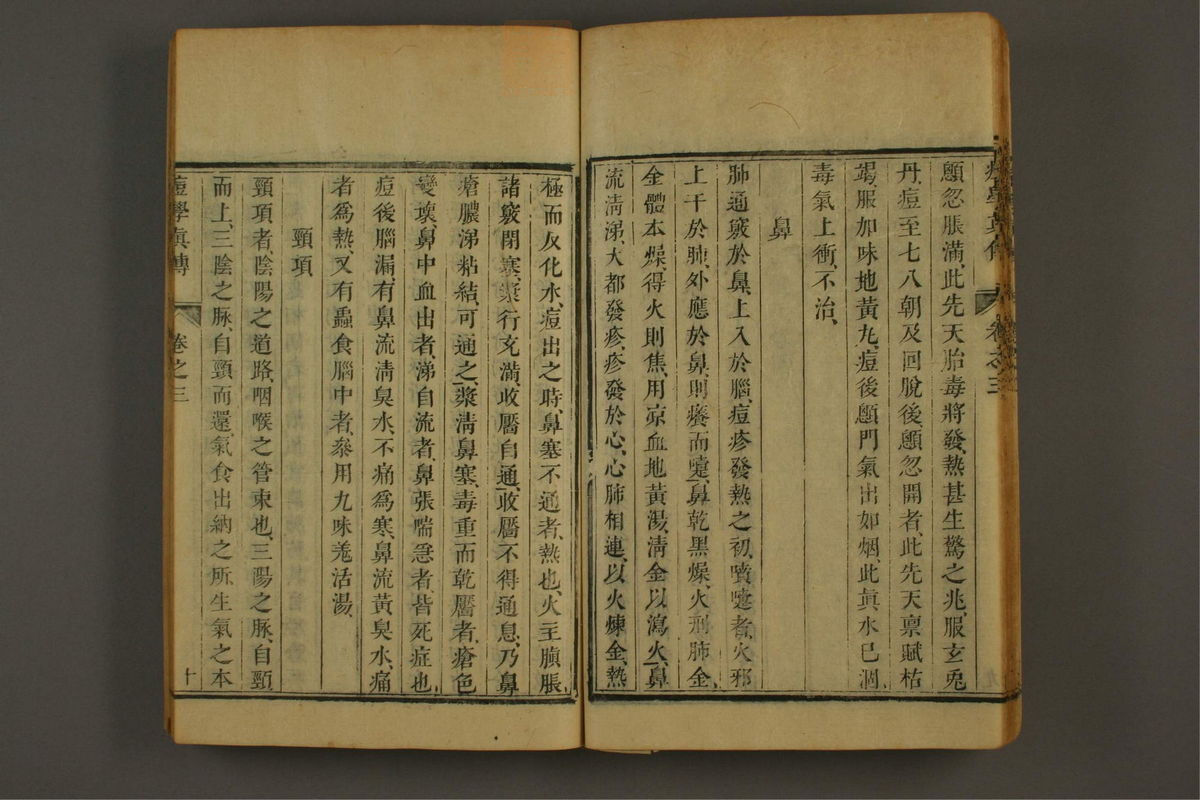 顖忽脹滿此先天胎毒將發、熱甚生驚之兆、服玄兎
丹、痘至七八朝及回脫後顖忽開者、此先天禀賦枯
竭、服加味地黃丸、痘後顖門氣出如烟、此眞水已涸、
毒氣上衝、不治、
鼻
肺通竅於鼻、上入於腦、痘疹發熱之初、噴嚏者、火邪
上干於肺、外應於鼻、則癢而嚏、鼻乾黑燥、火刑肺金
金體本燥、得火則焦、用凉血地黃湯、淸金以瀉火、鼻
流淸涕、大都發疹、疹發於心、心肺相連、以火煉金、熱
極而反化水、痘出之時、鼻塞不通者、熱也、火主䐜脹
諸竅閉塞、漿行充滿、收靨自通、收靨不得通息、乃鼻
瘡膿涕粘結、可通之、漿淸鼻塞、毒重而乾靨者、瘡色
變壞、鼻中血出者、涕自流者、鼻張喘急者皆死症也、
痘後腦漏、有鼻流淸臭水、不痛爲寒、鼻流黃臭水、痛
者爲熱、又有蟲食腦中者、叅用九味羗活湯、
頸項
頸項者陰陽之道路、咽喉之管束也、三陽之脉、自頸
而上、三陰之脉、自頸而還、氣食出納之所、生氣之本
痘學眞傳
卷之三
十